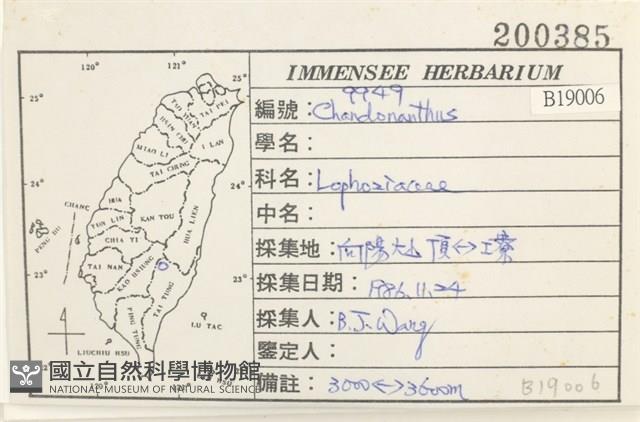 200385
IMMENSEE HERBARIUM
B19006
編號：9949
Chandonanthus
學名：
科名：Lophoziaceae
中名：
採集地：向陽大山頂<->工寮
採集日期：1986.11.24
採集人：B.J. Wang
鑒定人：
備註：3000<->3600m
B19006
120° 121°
25° 25°
TAO YUAN
TAI PEI
HSIN CHU
I LAN
MIAO LI
TAI CHUNG
24° 24°
CHANG
HUA
PENG HU
YUN LIN
NAN TOU
HUA LIEN
CHIA YI
23° 23°
TAI NAN
KAO HSIUNG
TAI TUNG
PING TUNG
LU TAO
LIUCHIU HSU
120° 121°
國立自然科學博物館
NATIONAL MUSEUM OF NATURAL SCIENCE